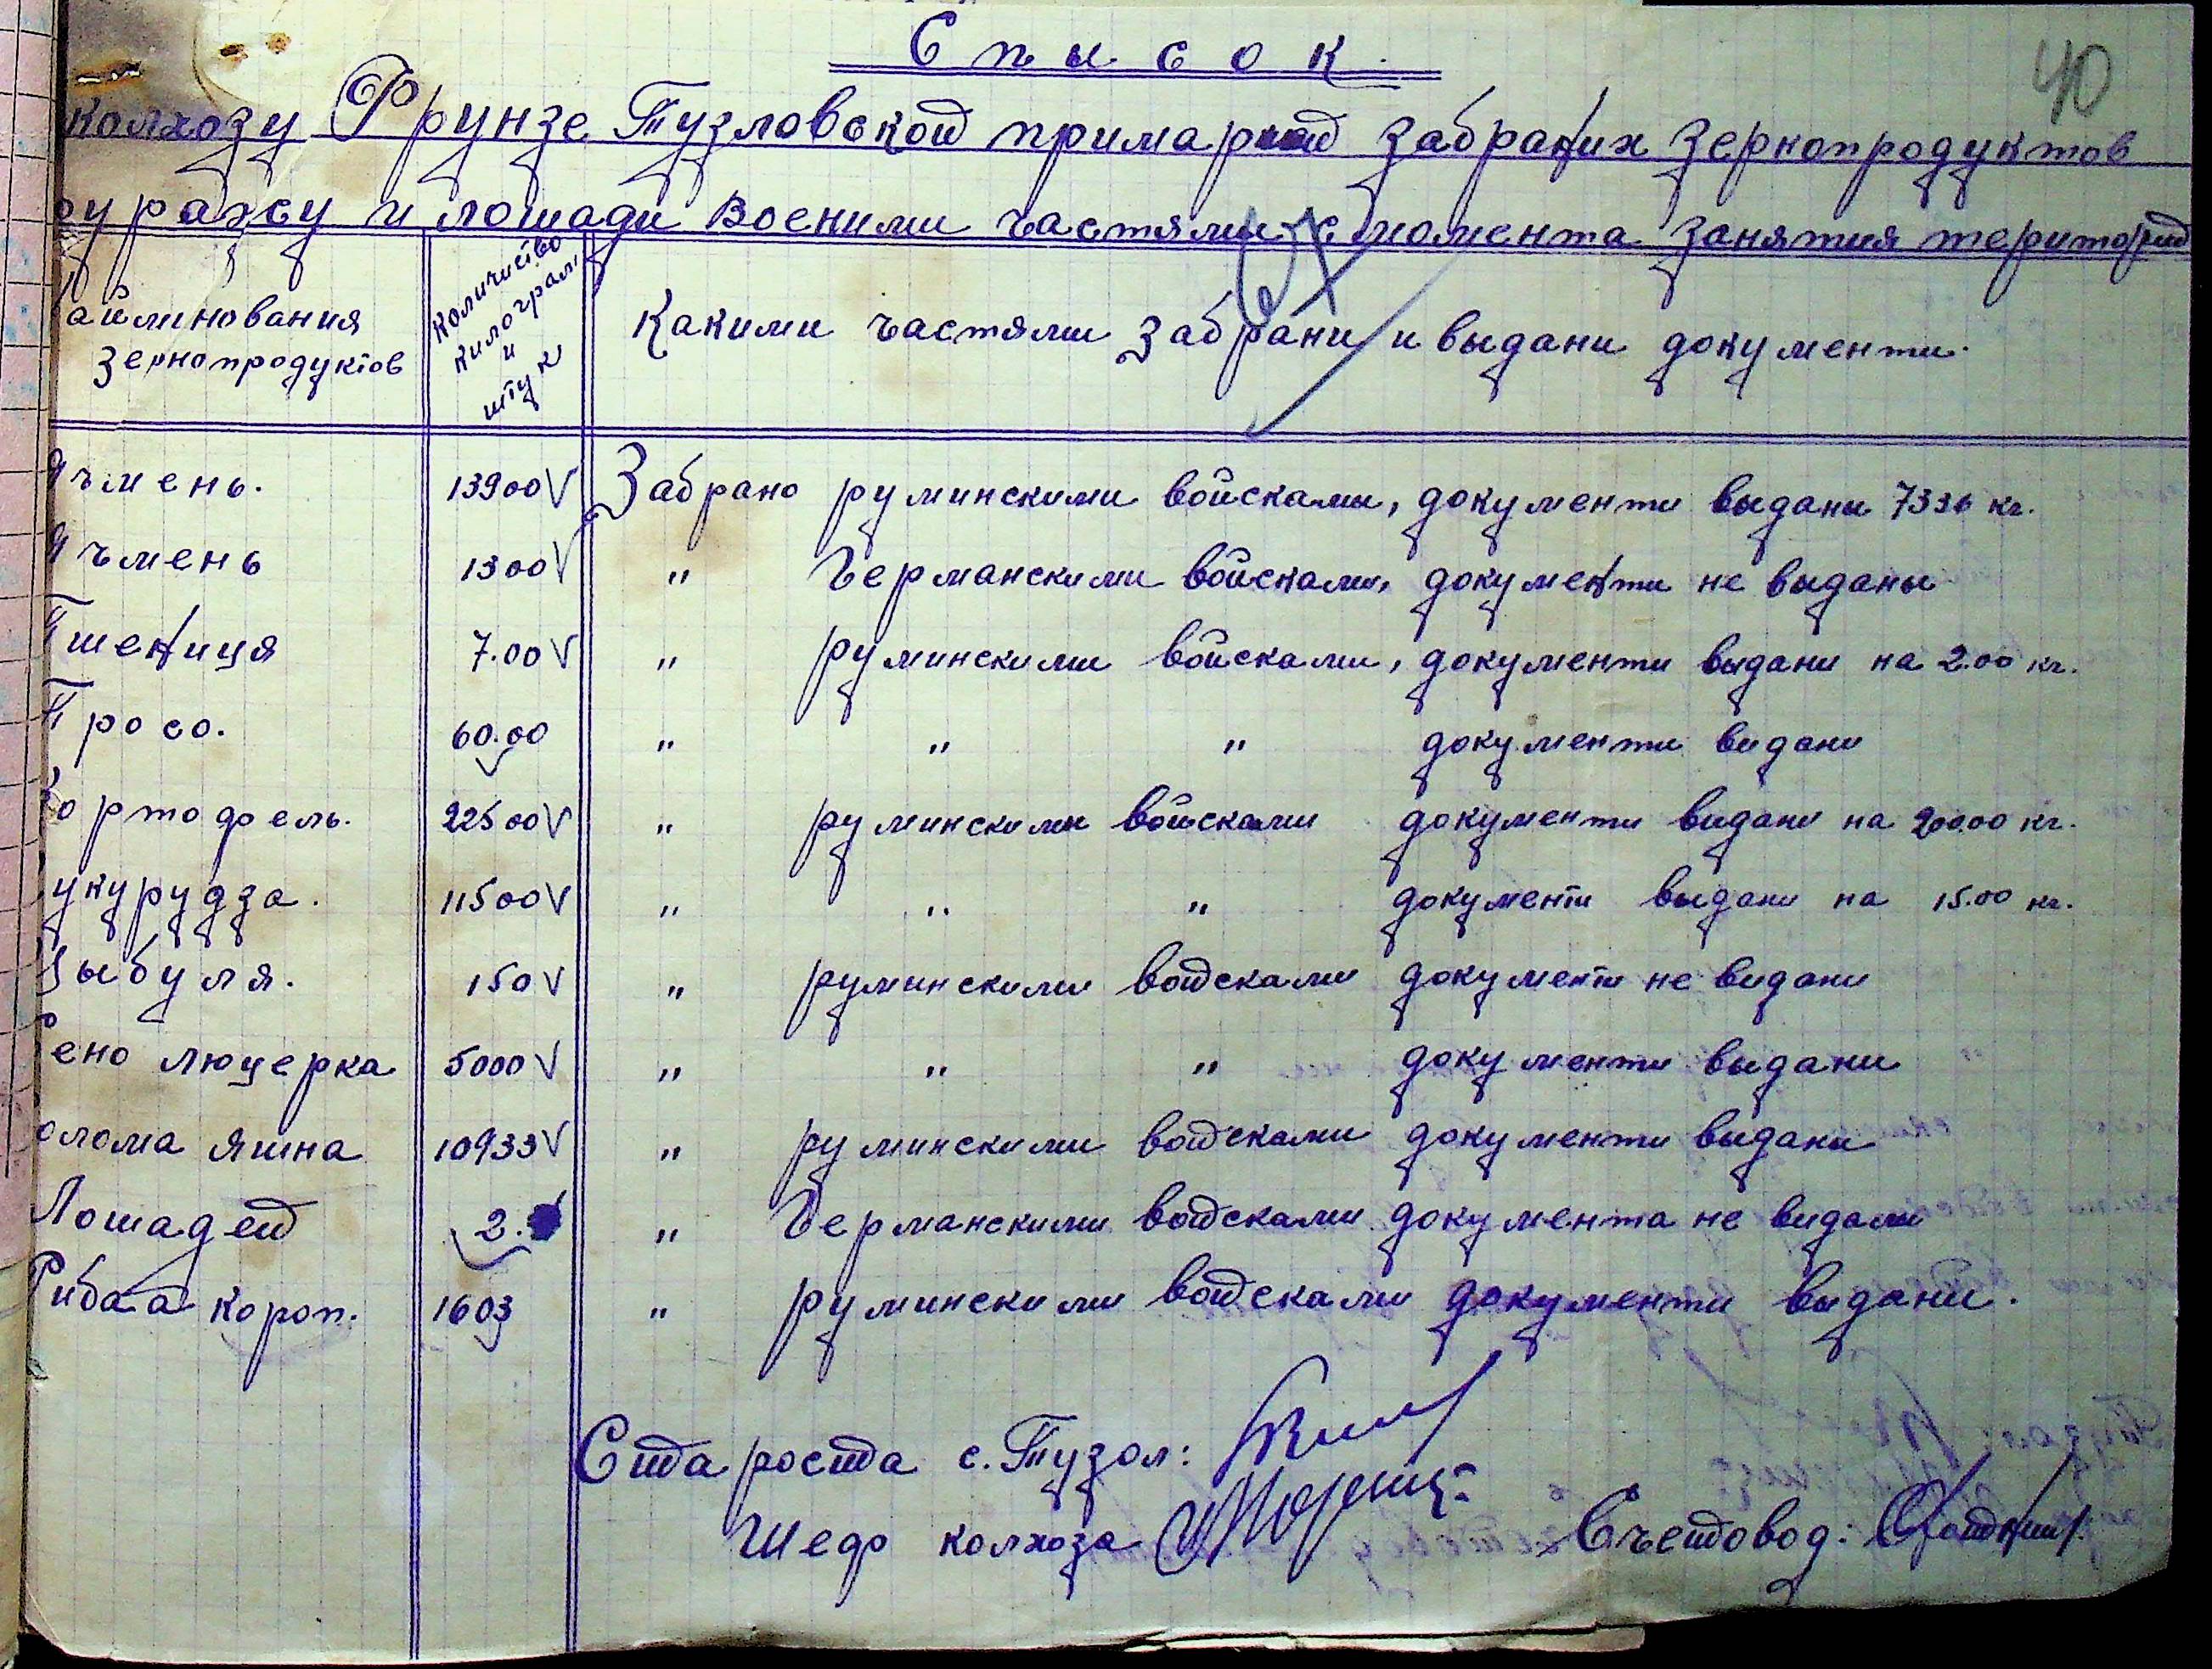 Спысок.
40
колхозу Фрунзе Тузловской примарией забраних зернопродуктов
фуражу и лошади военими частями с момента занятия територий
67
Найминования зернопродуктов
Количиство килограм и штук
Какими частями забрани и выдани документи.
Ячмень. 13900 V Забрано руминскими войсками, документи выданы 7336 кг.
Ячмень 1300 V " Германскими войсками, документи не выданы
Пшениця 7.00 V " руминскими войсками, документи выдани на 2.00 кг.
Просо. 60.00 V " " " документи видани
Кортофель. 22500 V " руминскими войсками документи видани на 200.00 кг.
Кукурудза. 11500 V " " " документи выдани на 15.00 кг.
Цыбуля. 150 V " руминскими войсками документи не видани
Сено люцерка 5000 V " " " документи выдани
Солома яшна 10933 V " руминскими войсками документи выдани
Лошадей 2. " Германскими войсками документа не видали
Риба а короп. 1603 V " руминскими войсками документи выдани.
Староста с. Тузол:
Шеф колхоза
Счетовод: